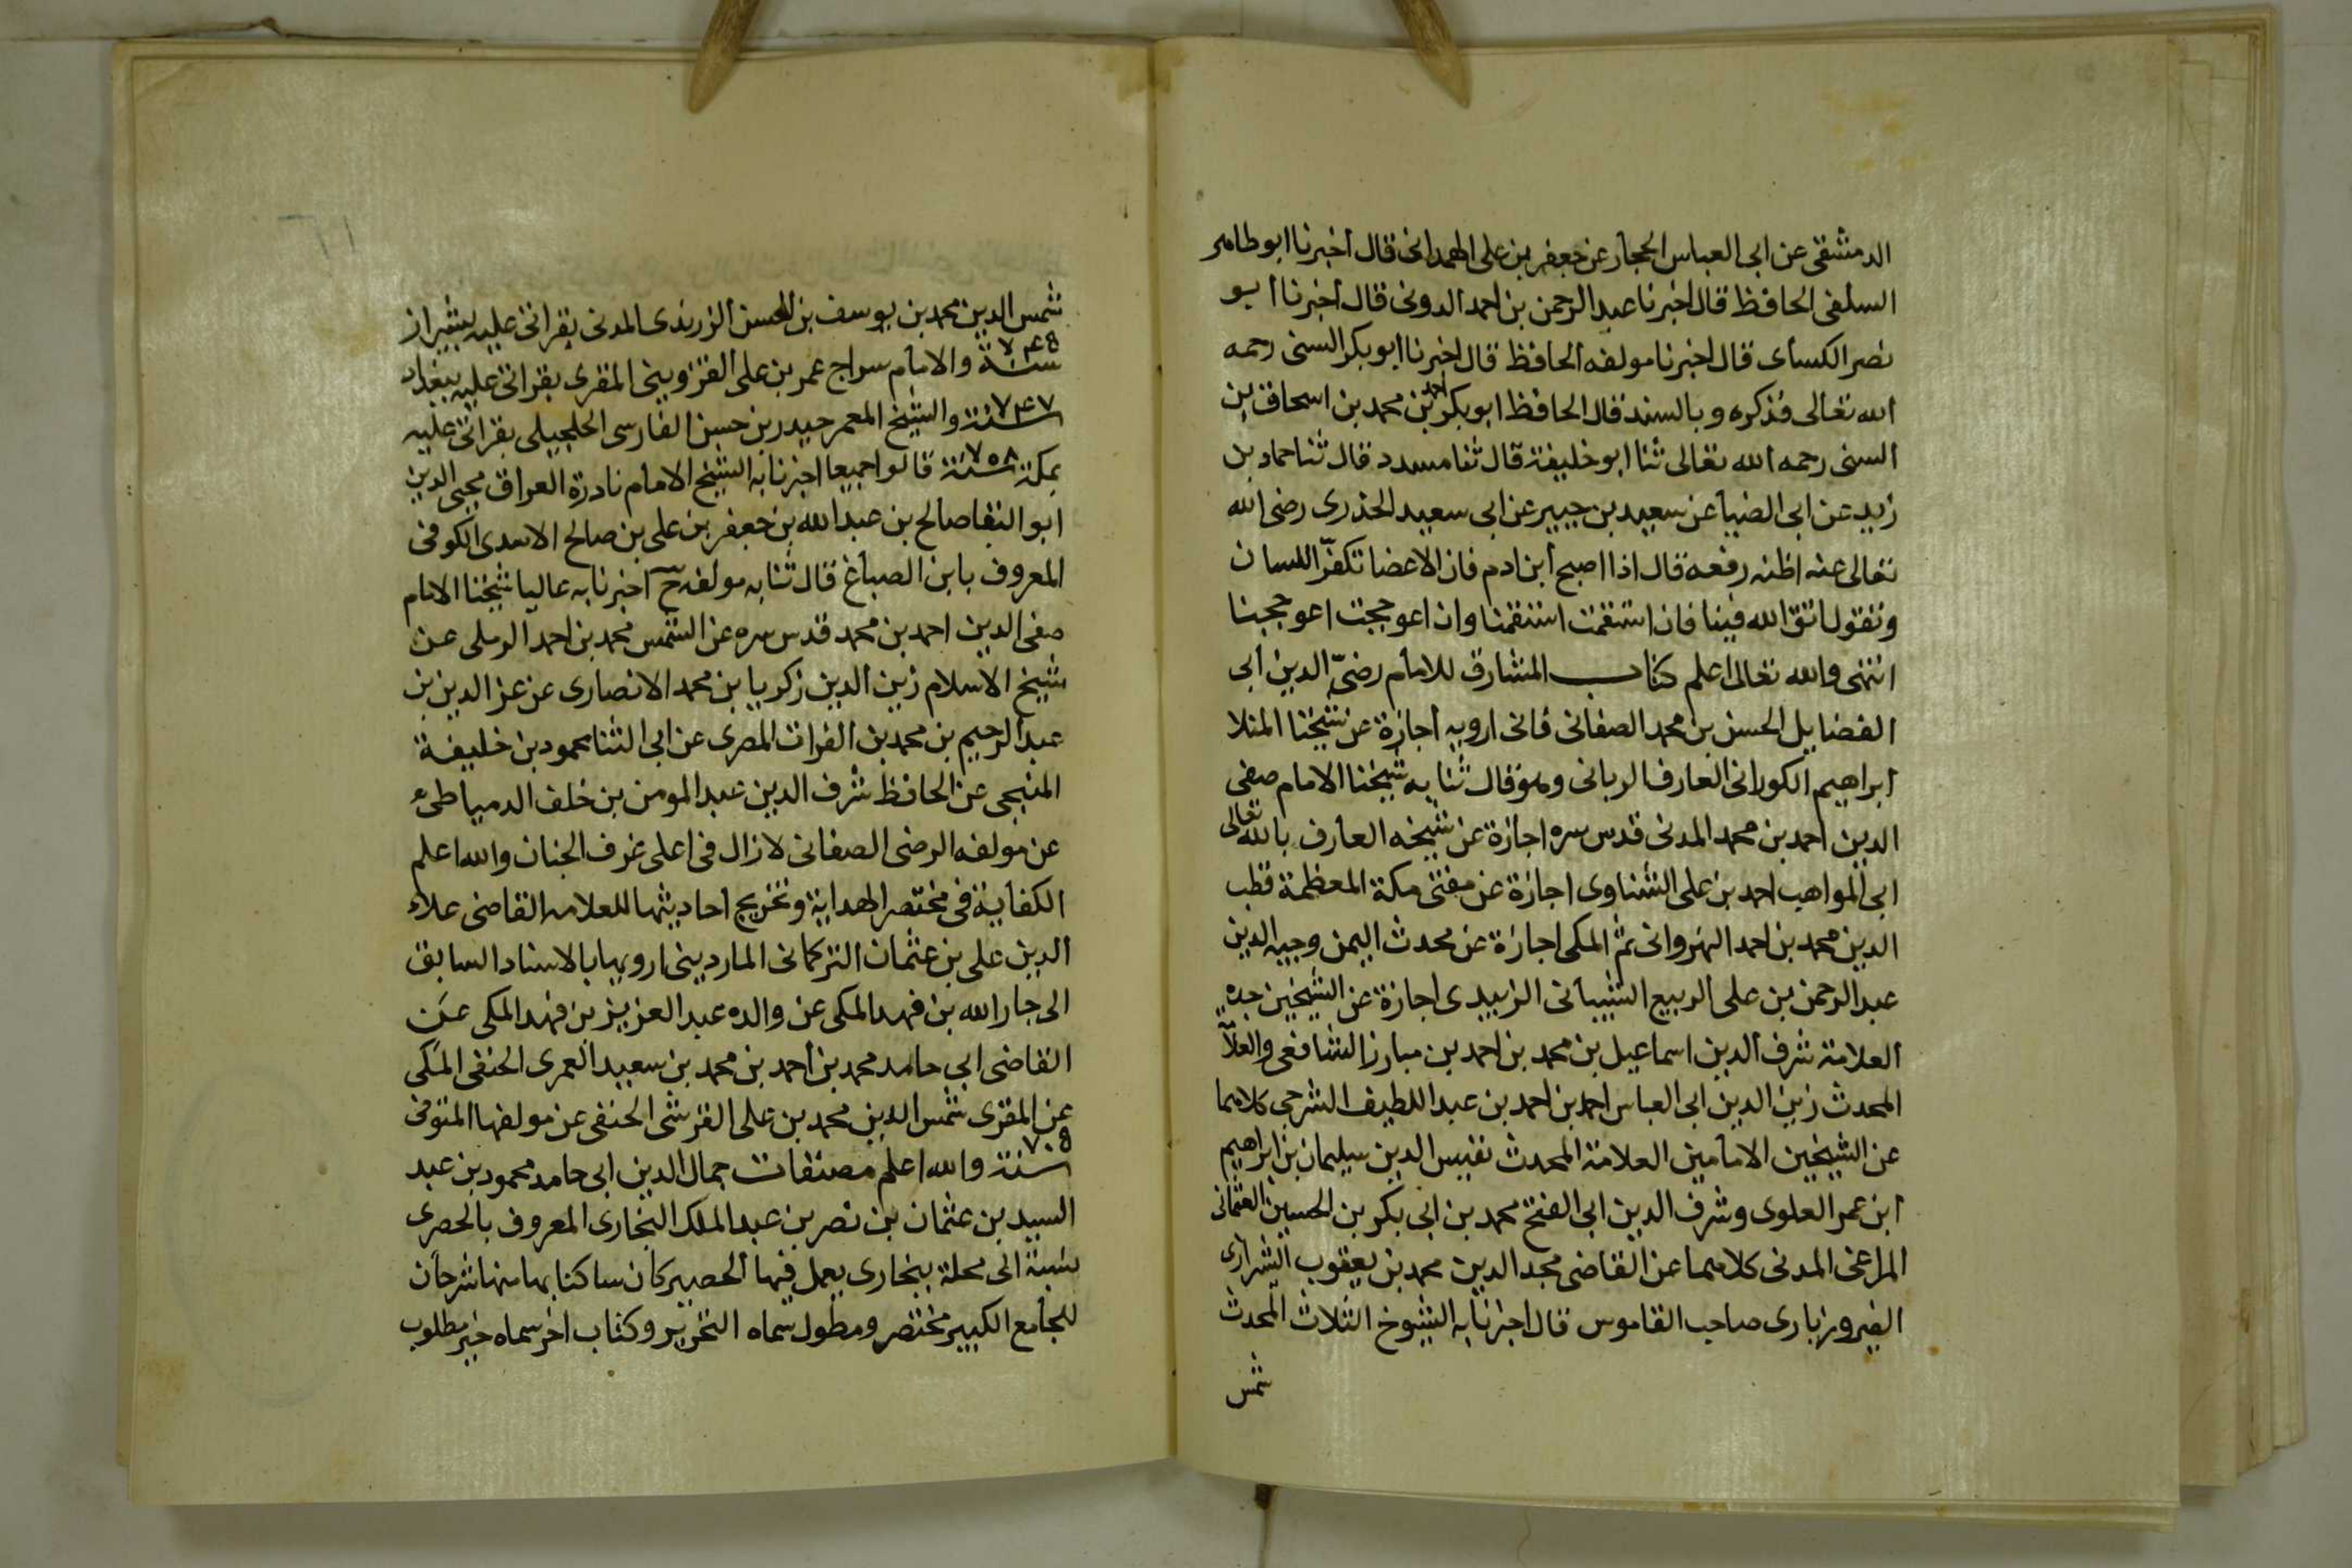 الدمشقى عن ابى العباس الحجار عن جعفر بن على الهمدانى قال أخبرنا ابو طاهر
السلفى الحافظ قال اخبرنا عبد الرحمن بن احمد الدونى قال أخبرنا ابو
نصر الكساى قال اخبرنا مولفه الحافظ قال اخبرنا ابو بكر السنى رحمه
الله تعالى فذكره وبالسند قال الحافظ ابو بكر احمد بن محمد بن اسحاق بن
السنى رحمه الله تعالى ثنا ابو خليفة قال ثنا مسدد قال ثنا حماد بن
زيد عن ابى الصبا عن سعيد بن جبير عن ابى سعيد الخدرى رضى الله
تعالى عنه اظنه رفعه قال اذا اصبح ابن ادم فان الاعضا تكفر اللسان
وتقول اتق الله فينا فان استقمت استقمنا وان اعوججت اعوججنا
انتهى والله تعالى اعلم كتاب المشارق للامام رضىّ الدين ابى
الفضايل الحسن بن محمد الصغانى فانى ارويه اجازة عن شيخنا المنلا
ابراهيم الكورانى العارف الربانى وهو قال ثنا به شيخنا الامام صفى
الدين احمد بن محمد المدنى قدس سره اجازة عن شيخه العارف بالله تعالى
ابى المواهب احمد بن على الشناوى اجازة عن مفتى مكة المعظمة قطب
الدين محمد بن احمد النهروانى ثم المكى اجازة عن محدث اليمن وجيه الدين
عبد الرحمن بن على الربيع الشيبانى الزبيدى اجازة عن الشيخين جده
العلامة شرف الدين اسماعيل بن محمد بن احمد بن مبارز الشافعى والعلاّ
المحدث زين الدين ابى العباس احمد بن احمد بن عبد اللطيف الشرجى كلاهما
عن الشيخين الامامين العلامة المحدث نفيس الدين سليمان بن ابراهيم
ابن عمر العلوى وشرف الدين ابى الفتح محمد بن ابى بكر بن الحسين العثمانى
المراغى المدنى كلاهما عن القاضى مجد الدين محمد بن يعقوب الشيرازى
الفيروزبارى صاحب القاموس قال اخبرنا به الشيوخ الثلاث المحدث
شمس
شمس الدين محمد بن يوسف بن الحسن الزرندى المدنى بقراتى عليه بشيراز
سنة ٧٤٥ والامام سراج عمر بن على القزوينى المقرى بقراتى عليه ببغداد
سنة ٧٤٧ والشيخ المعمر حيدر بن حسن الفارسى الحلجيلى بقراتى عليه
بمكة سنة ٧٥٨ قالوا جميعا اخبرنا به الشيخ الامام نادرة العراق محيى الدين
ابو البقا صالح بن عبد الله بن جعفر بن على بن صالح الاسدى الكوفى
المعروف بابن الصباغ قال ثنا به مولفه ح اخبرنا به عاليا شيخنا الامام
صفى الدين احمد بن محمد قدس سره عن الشمس محمد بن احمد الرملى عن
شيخ الاسلام زين الدين زكريا بن محمد الانصارى عن عز الدين بن
عبد الرحيم بن محمد بن الفرات المصرى عن ابى الثنا محمود بن خليفة
المنبجى عن الحافظ شرف الدين عبد المومن بن خلف الدمياطىء
عن مولفه الرضى الصغانى لازال فى اعلى غرف الجنان والله اعلم
الكفاية فى مختصر الهداية وتخريج احاديثها للعلامه القاضى علاء
الدين على بن عثمان التركمانى الماردينى ارويها بالاسناد السابق
الى جار الله بن فهد المكى عن والده عبد العزيز بن فهد المكى عن
القاضى ابى حامد محمد بن احمد بن محمد بن سعيد العمرى الحنفى المكى
عن المقرى شمس الدين محمد بن على القرشى الحنفى عن مولفها المتوفى
سنة ٧٠٥ والله اعلم مصنفات جمال الدين ابى حامد محمود بن عبد
السيد بن عثمان بن نصر بن عبد الملك البخارى المعروف بالحصرى
نسبة الى محلة ببخارى يعمل فيها الحصير كان ساكنا بها منها شرحان
للجامع الكبير مختصر ومطول سماه التحرير وكتاب اخر سماه خير مطلوب